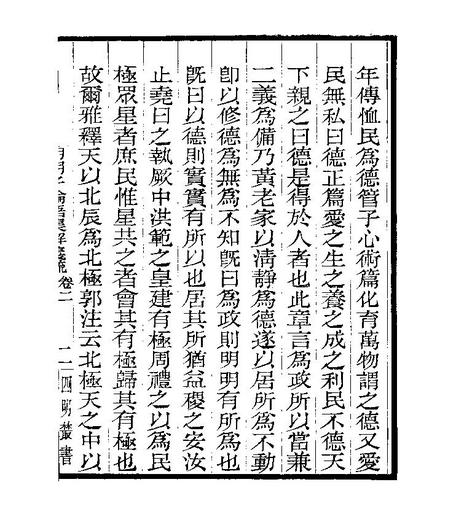 年傳恤民為德管子心術篇化育萬物謂之德又愛
民無私曰德正篇愛之生之養之成之利民不德天
下親之曰德是得於人者也此章言為政所以當兼
二義為備乃黃老家以清靜為德遂以居所為不動
卽以修德為無為不知旣曰為政則明明有所為也
旣曰以德則實實有所以也居其所猶益稷之安汝
止堯曰之執厥中洪範之皇建有極周禮之以為民
極眾星者庶民惟星共之者會其有極歸其有極也
故爾雅釋天以北辰為北極郭注云北極天之中以
論語
卷二
二
四明叢書